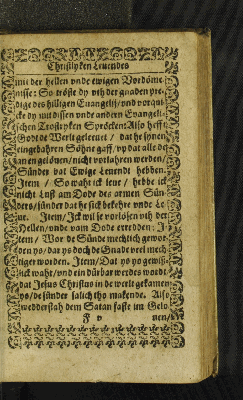 Christlyken Levendes
mit der hellen vnde ewigen Vordöme-
nisse: So tröste dy vth der gnaden pre-
dige des hilligen Euangelij/ vnd vorqui-
cke dy mit dissen vnde andern Euangeli-
schen Trostryken Spröcken: Also hefft
Godt de Werlt geleuet / dat he synen
eingebahren Söhne gaff/ vp dat alle de
an en gelöuen/ nicht vorlahren werden/
Sünder dat Ewige Leuendt hebben.
Item / So wahr ick leue / hebbe ick
nicht Lust am Dode des armen Sün-
ders/ sünder dat he sick bekehre vnde Le-
ue. Item/ Ick wil se vorlösen vth der
Hellen/ vnde vam Dode erredden: J-
tem / Wor de Sünde mechtich gewor-
den ys/ dar ys doch de Gnade veel mech-
tiger worden. Item/ Dat ys yo gewiß-
lick wahr/ vnd ein dürbar werdes wordt
dat Jesus Christus in de werlt gekamen
ys/ de sünder salich tho makende. Also
wedderstah dem Satan faste im Gelo-
F v
uen/